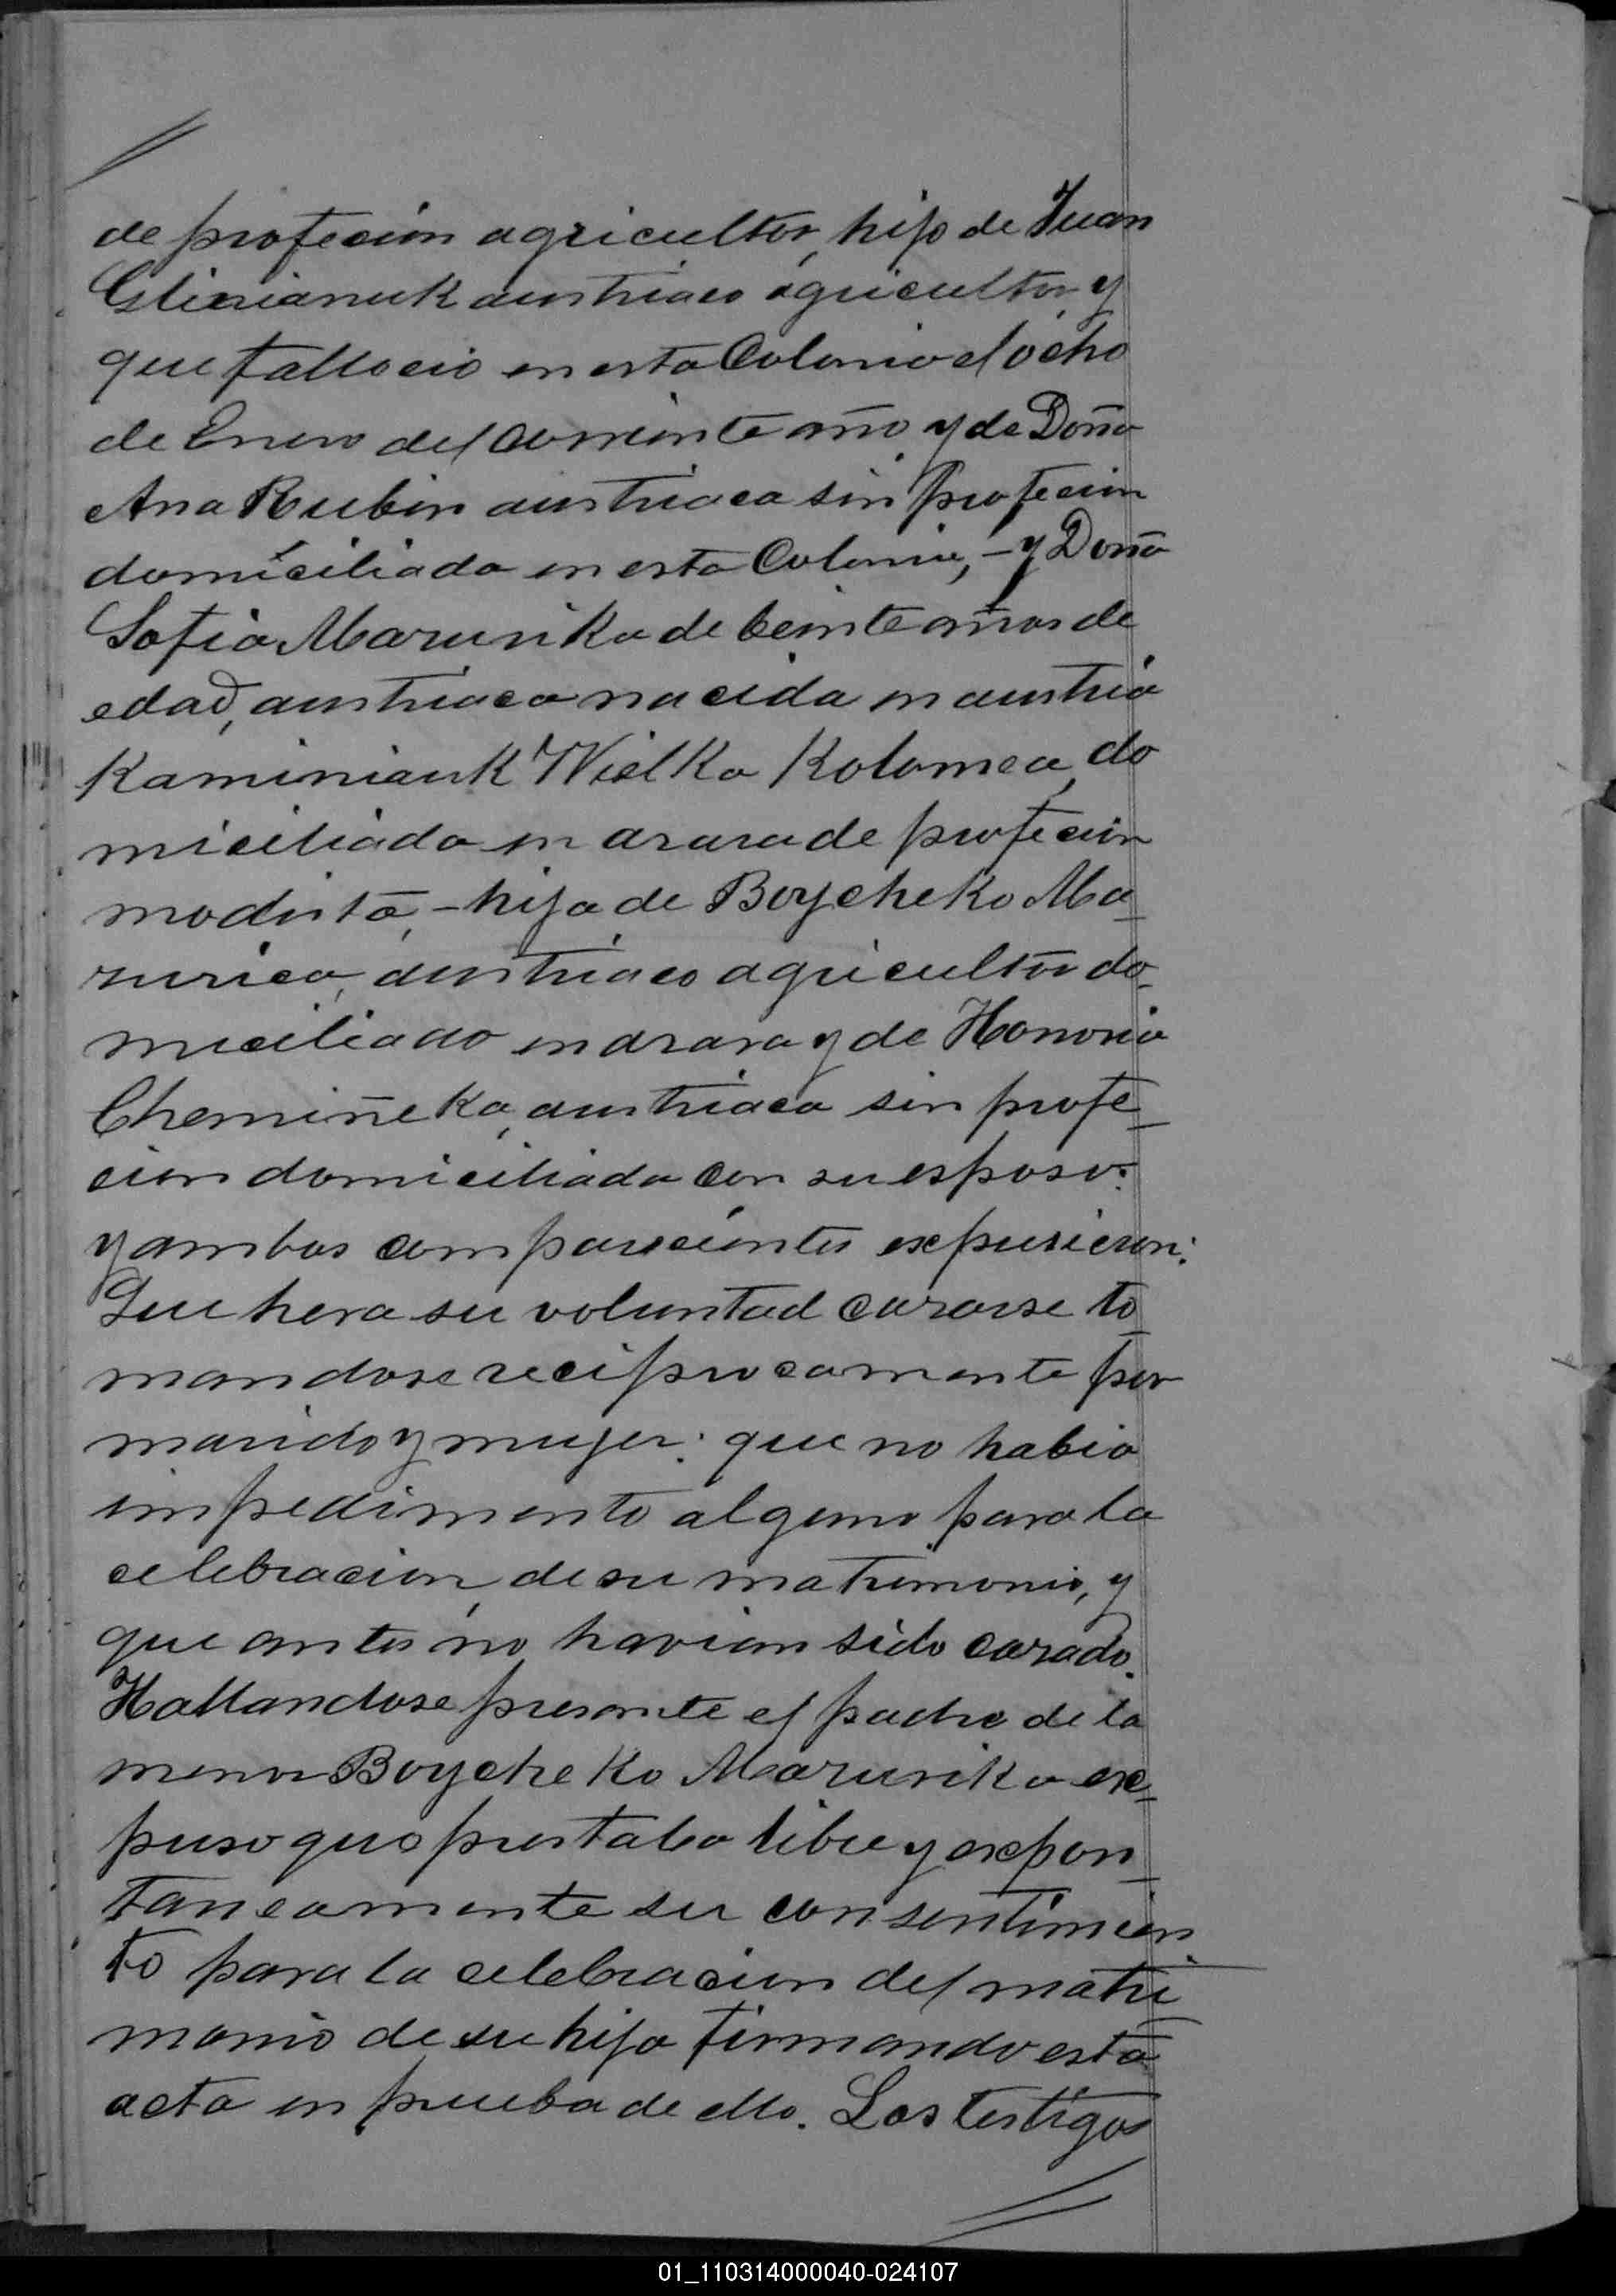 de profecion agricultor, hijo de Juan
Glinianuk austriaco agricultor y
que fallecio en esta Colonia el ocho
de Enero del corriente año y de Doña
Ana Rubin austriaca sin profecion
domiciliada en esta Colonia, - y Doña
Sofia Mazurika de beinte años de
edad, austriaca nacida en austria
Kaminiank Wielka Kolomea, do
miciliada en azara de profecion
modista, - hija de Boycheko Ma-
zurica, austriaco agricultor do-
miciliado en azara y de Honoria
Chemiñeka, austriaca sin profe-
cion domiciliada con su esposo:
y ambos comparecientes expusieron:
Que hera su voluntad casarse to
mandose reciprocamente por
marido y mujer: que no habia
impedimento alguno para la
celebracion, de su matrimonio, y
que antes no havian sido casado.
Hallandose presente el padre de la
menor Boycheko Mazurika ex-
puso que prestaba libre y expon-
taneamente su consentimien
to para la celebracion del matri
monio de su hija firmando esta
acta en prueba de ello. Los testigos
01_110314000040-024107